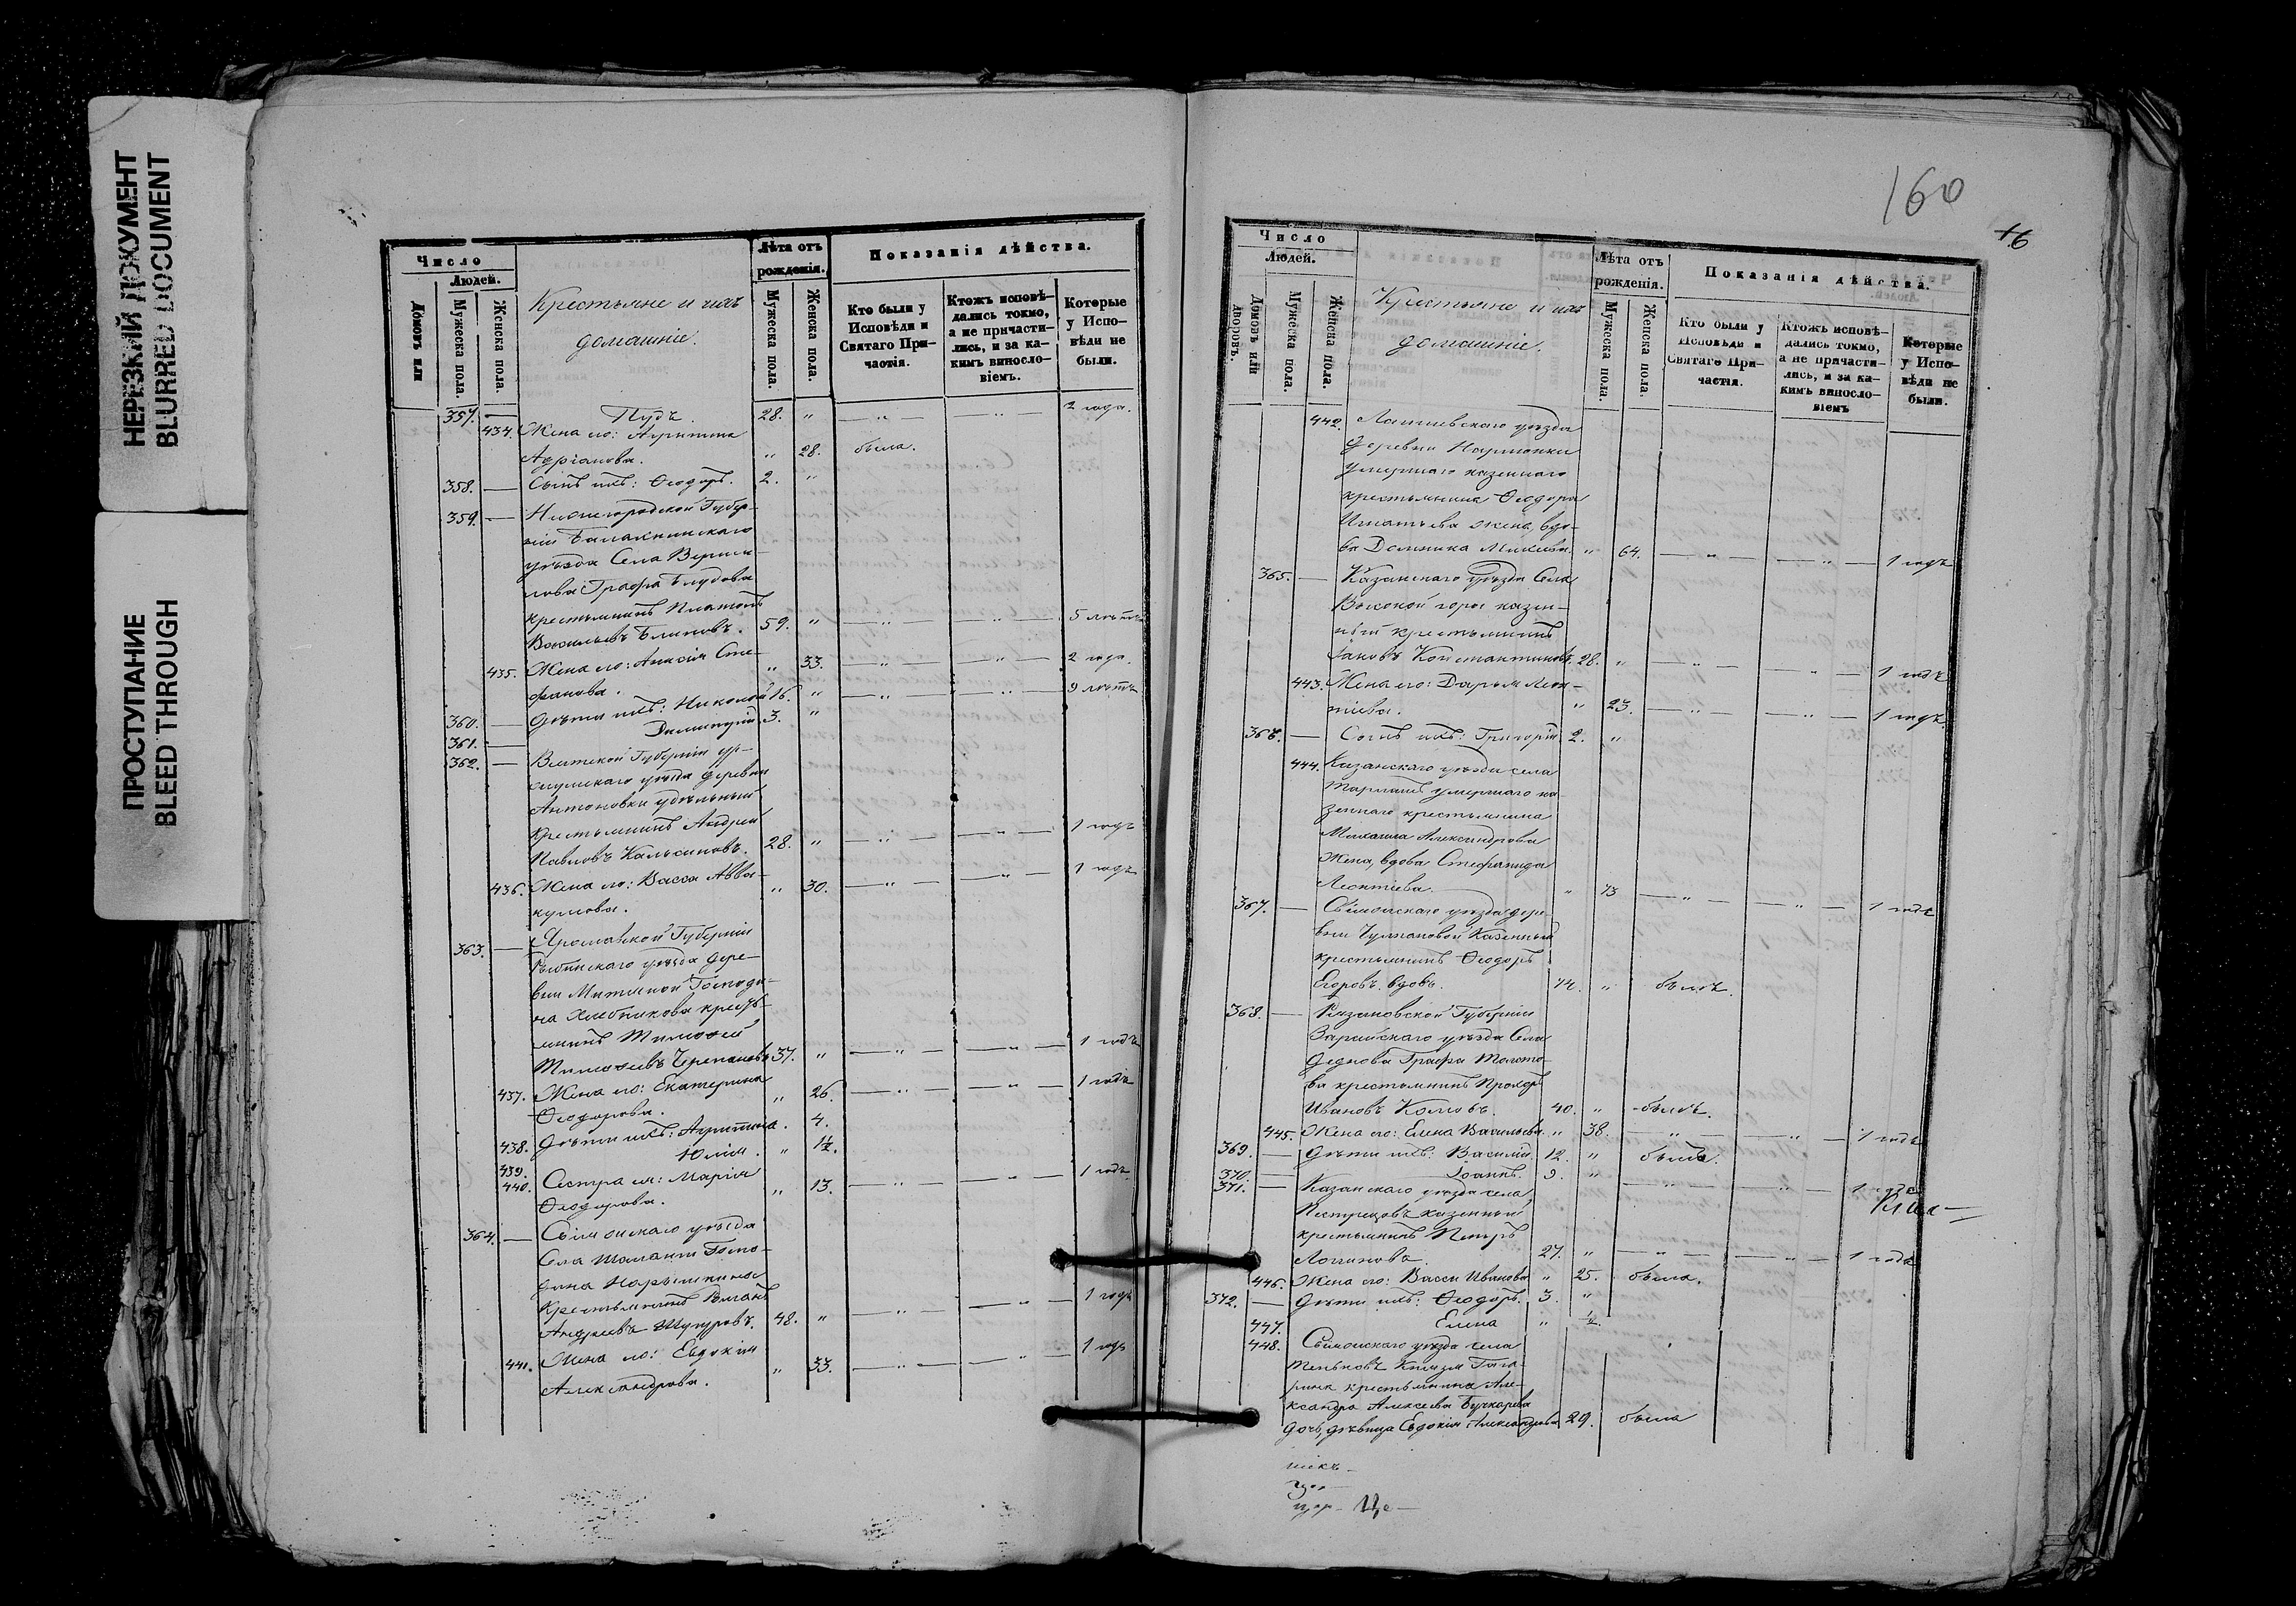 НЕРЕЗКИЙ ДОКУМЕНТ
BLURRED DOCUMENT
ПРОСТУПАНИЕ
BLEED THROUGH
Число
Людей.
Домовъ или
Мужеска пола.
Женска пола.
Крестьяне и ихъ
домашніе.
Лѣта отъ
рожденія.
Мужеска пола.
Женска пола.
Показанія дѣйства.
Кто были у
Исповѣди и
Святаго При-
частія.
Ктожъ исповѣ-
дались токмо,
а не причасти-
лись, и за ка-
кимъ винosло-
віемъ.
Которые
у Испо-
вѣди не
были.
357. Пудъ. 28. " " " 2 года.
434. Жена его: Агрипина
Адріанова. " 28. была.
358. Сынъ ихъ: Ѳеодоръ. 2. "
359. Нижегородской Губер-
ніи Балахнинскаго
уѣзда Села
Графа Блудова
крестьянинъ Платонъ
Васильевъ Блиновъ. 59. " " " 5 лѣтъ
435. Жена его: Анисія Сте-
фанова. " 33. " " 2 года.
360. Дѣти ихъ: Николай 16. " " " 9 лѣтъ
361. Димитрій 3. "
362. Вятской Губерніи Ур-
жумскаго уѣзда деревни
Антоновки удѣльный
крестьянинъ Андрей
Павловъ 28. " " " 1 годъ
436. Жена его: Васса Авва-
кумова. " 30. " " 1 годъ
363. Ярославской Губерніи
Рыбинскаго уѣзда дере-
вни Господи-
на Хлебникова кресть-
янинъ Тимоѳей
Тимоѳеевъ Черепановъ 37. " " " 1 годъ
437. Жена его: Екатерина
Ѳеодорова. " 26. " " 1 годъ
438. Дѣти ихъ: Агрипина. 4.
439. Юлія. " 1½.
440. Сестра ея: Марія
Ѳеодорова. " 13. " " 1 годъ
364. Свіяжскаго уѣзда
Села Шаланги Госпо-
дина Нарышкина
крестьянинъ Романъ
Андреевъ 48. " " " 1 годъ
441. Жена его: Евдокія
Александрова. " 33. " " 1 годъ
160
Число
Людей.
Домовъ или
дворовъ.
Мужеска пола.
Женска пола.
Крестьяне и ихъ
домашніе.
Лѣта отъ
рожденія.
Мужеска пола.
Женска пола.
Показанія дѣйства.
Кто были у
Исповѣди и
Святаго При-
частія.
Ктожъ исповѣ-
дались токмо,
а не причасти-
лись, и за ка-
кимъ виносло-
віемъ
Которые
у Испо-
вѣди не
были.
442. Лаишевскаго уѣзда
деревни
умершаго казеннаго
крестьянина Ѳеодора
Игнатьева жена, вдо-
ва Домника " 64. " " 1 годъ
365. Казанскаго уѣзда Села
Высокой горы казен-
ный крестьянинъ
Іаковъ Константиновъ. 28. " " " 1 годъ
443. Жена его: Дарья Леон-
тіева. " 23. " " 1 годъ.
366. Сынъ ихъ: Григорій. 2. "
444. Казанскаго уѣзда села
умершаго ка-
зеннаго крестьянина
Михаила Александрова
жена, вдова Стефанида
Леонтіева. " 73 " " 1 годъ
367. Свіяжскаго уѣзда дере-
вни казенный
крестьянинъ Ѳеодоръ
Егоровъ. вдовъ. 74. " былъ.
368. Рязановской Губерніи
Зарайскаго уѣзда Села
Дединова Графа Толсто-
ва крестьянинъ Прохоръ
Ивановъ Комовъ. 40. " былъ.
445. Жена его: Елена Васильева. " 38. " " 1 годъ
369. Дѣти ихъ: Василій. 12. " былъ.
370. Іоаннъ. 9. " " " 1 годъ
371. Казанскаго уѣзда села
Пестрецовъ казенный
крестьянинъ Петръ
Логиновъ. 27. " " " 1 годъ
446. Жена его: Васса Иванова " 25. была.
372. Дѣти ихъ: Ѳеодоръ. 3. "
447. Елена " ½.
448. Свіяжскаго уѣзда села
Теньковъ Князя Гага-
рина крестьянина Але-
ксандра Алексеева
дочь, дѣвица Евдокія Александрова 29. была